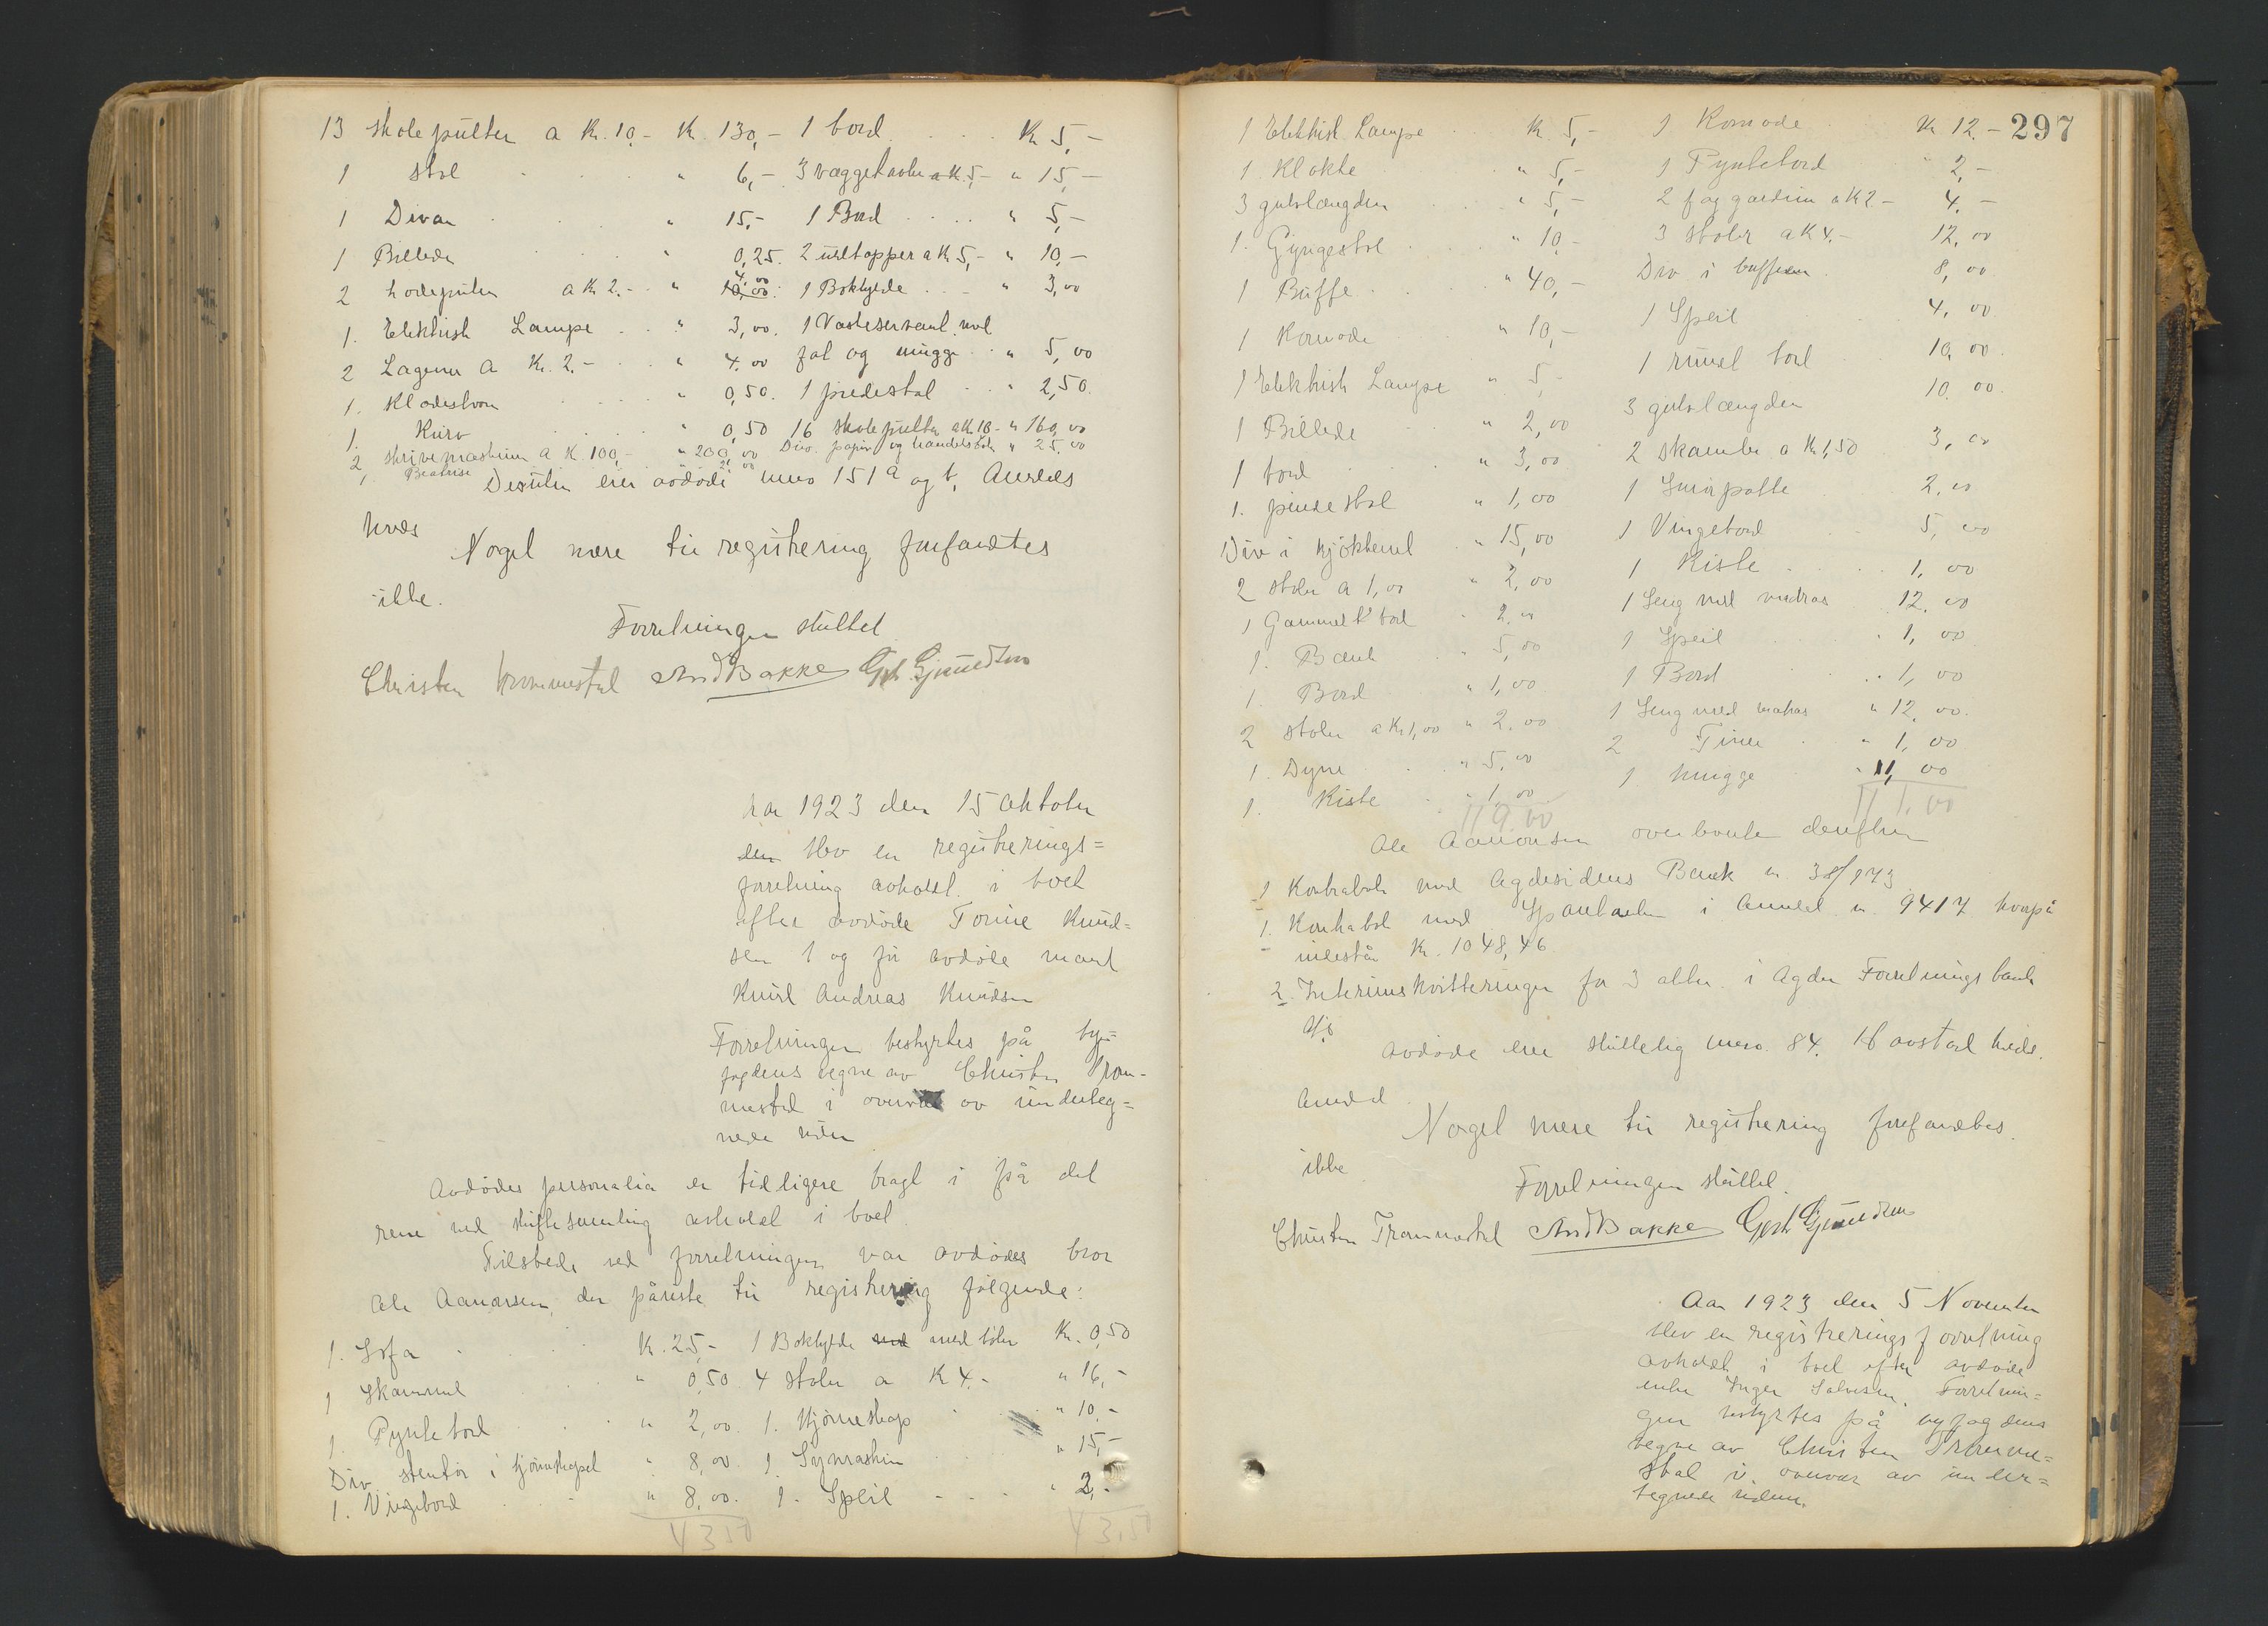 13 skolepulter a Kr. 10,- Kr. 130,- 1 bord Kr 5,-
1 stol " 6,- 3 væggetavler a K. 5,- " 15,-
1 Divan " 15,- 1 Bord " 5,-
1 Billede 0,25. 2 ultepper a Kr 5,- " 10,-
2 hodeputer a Kr 2.- " 4,00 1 Bokhylde " 3,00
1. Elektrisk Lampe " 3,00. 1 Vaskeservant med
2 Lagener a Kr. 2.- " 4,00 fat og mugge " 5,00
1. Klædeskurv " 0,50. 1 pidestal " 2,50.
1. Kurv " 0,50 16 skolepulter a Kr 10 - " 160,00
2 skrivemaskiner a K. 100,- " 200,00 Div. papir og handelsbøker " 25,00
1, 2,00
Desuten eier avdøde mno 151 a og b, Arendals
Noget mere til registrering forfandtes
ikke.
Forretningen sluttet
Christen Trommestad And Bakke Gjertsen
Aar 1923 den 15 Oktober
den blev en registrerings=
forretning avholdt i boet
efter avdøde Tomine Knud=
sen 1 og før avdøde mand
Knud Andreas Knudsen
Forretningen bestyrtes på by=
fogdens vegne av Christen Trom-
mestad i overvær av underteg=
nede vidner
Avdødes personalia er tidligere bragt i på det
rene ved skiftesamling avholdt i boet
Tilstede ved forretningen var avdødes bror
Ole Aanonsen, der påviste til registrering følgende:
1. Sofa Kr. 25,- 1 Bokhylde med bøker Kr. 0,50
1 Skammel " 0,50 4 stoler a K 4.- " 16,-
1. Pyntebord " 2,00. 1. Hjørneskap " 10.-
Div. stentøi i hjørneskapet " 8,00 1 Symaskin " 15,-
1. Vingebord " 8,00. 1. Speil " 2,-
43,50 43,50
297
1 Elektrisk Lampe K. 5,- 1 Komode Kr 12.-
1. Klokke " 5,- 1 Pyntebord " 2,-
3 gulvlængder " 5,- 2 fag gardiner a K 2.- 4.-
1. Gyngestol " 10,- 3 stoler a K 4.- 12,00
1 Buffe " 40,- Div i buffeen 8,00
1 Komode " 10,- 1 Speil 4,00
1 Elektrisk Lampe " 5,- 1 rundt bord 10,00.
1 Billede " 2,00 3 gulvlængder 10.00.
1 bord " 3,00 2 skamler a Kr 1,50 3,00
1. pindestol " 1,00 1 Smørpotte 2,00
Div i kjøkkenet " 15,00 1 Vingebord 5,00
2 stoler a 1,00 " 2,00 1 Kiste 1,00
1 Gammelt bord " 2,00 1 Seng med madras 12,00
1. Bænk " 5,00 1 Speil " 1,00
1. Bord " 1,00 1 Bord " 1,00
2 stoler a Kr 1,00 " 2,00 1 Seng med matras " 12,00.
1. Dyne " 5,00 2 Tiner " 1,00
1. Kiste " 1,00 1 Mugge " 1,00
119,00 111,00
Ole Aanonsen overleverte derefter
1 Kontrabok med Agdesidens Bank n 38/973
1. Kontrabok med Sparebanken i Arendal n. 9417 hvorpå
indestår Kr. 1048,46.
2. Interimskvitteringer for 3 aktier i Agder Forretningsbank
A/S
Avdøde eier skiftelig mno. 84. 16 avstod
Arendal
Noget mere til registrering forefandtes
ikke
Forretningen sluttet.
Christen Trommestad And Bakke Gjertsen
Aar 1923 den 5 November
blev en registreringsforretning
avholdt i boet efter avdøde
enke Inger Salvesen. Forretnin=
gen bestyrtes på byfogdens
vegne av Christen Tromme=
stad i overvær av under=
tegnede vidner.